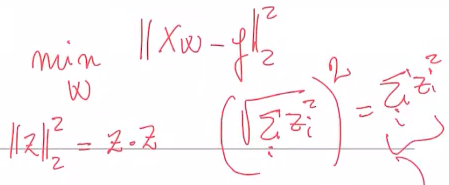 min_w ‖Xw − y‖₂²
‖z‖₂² = z · z (√(∑_i z_i²))² = ∑_i z_i²